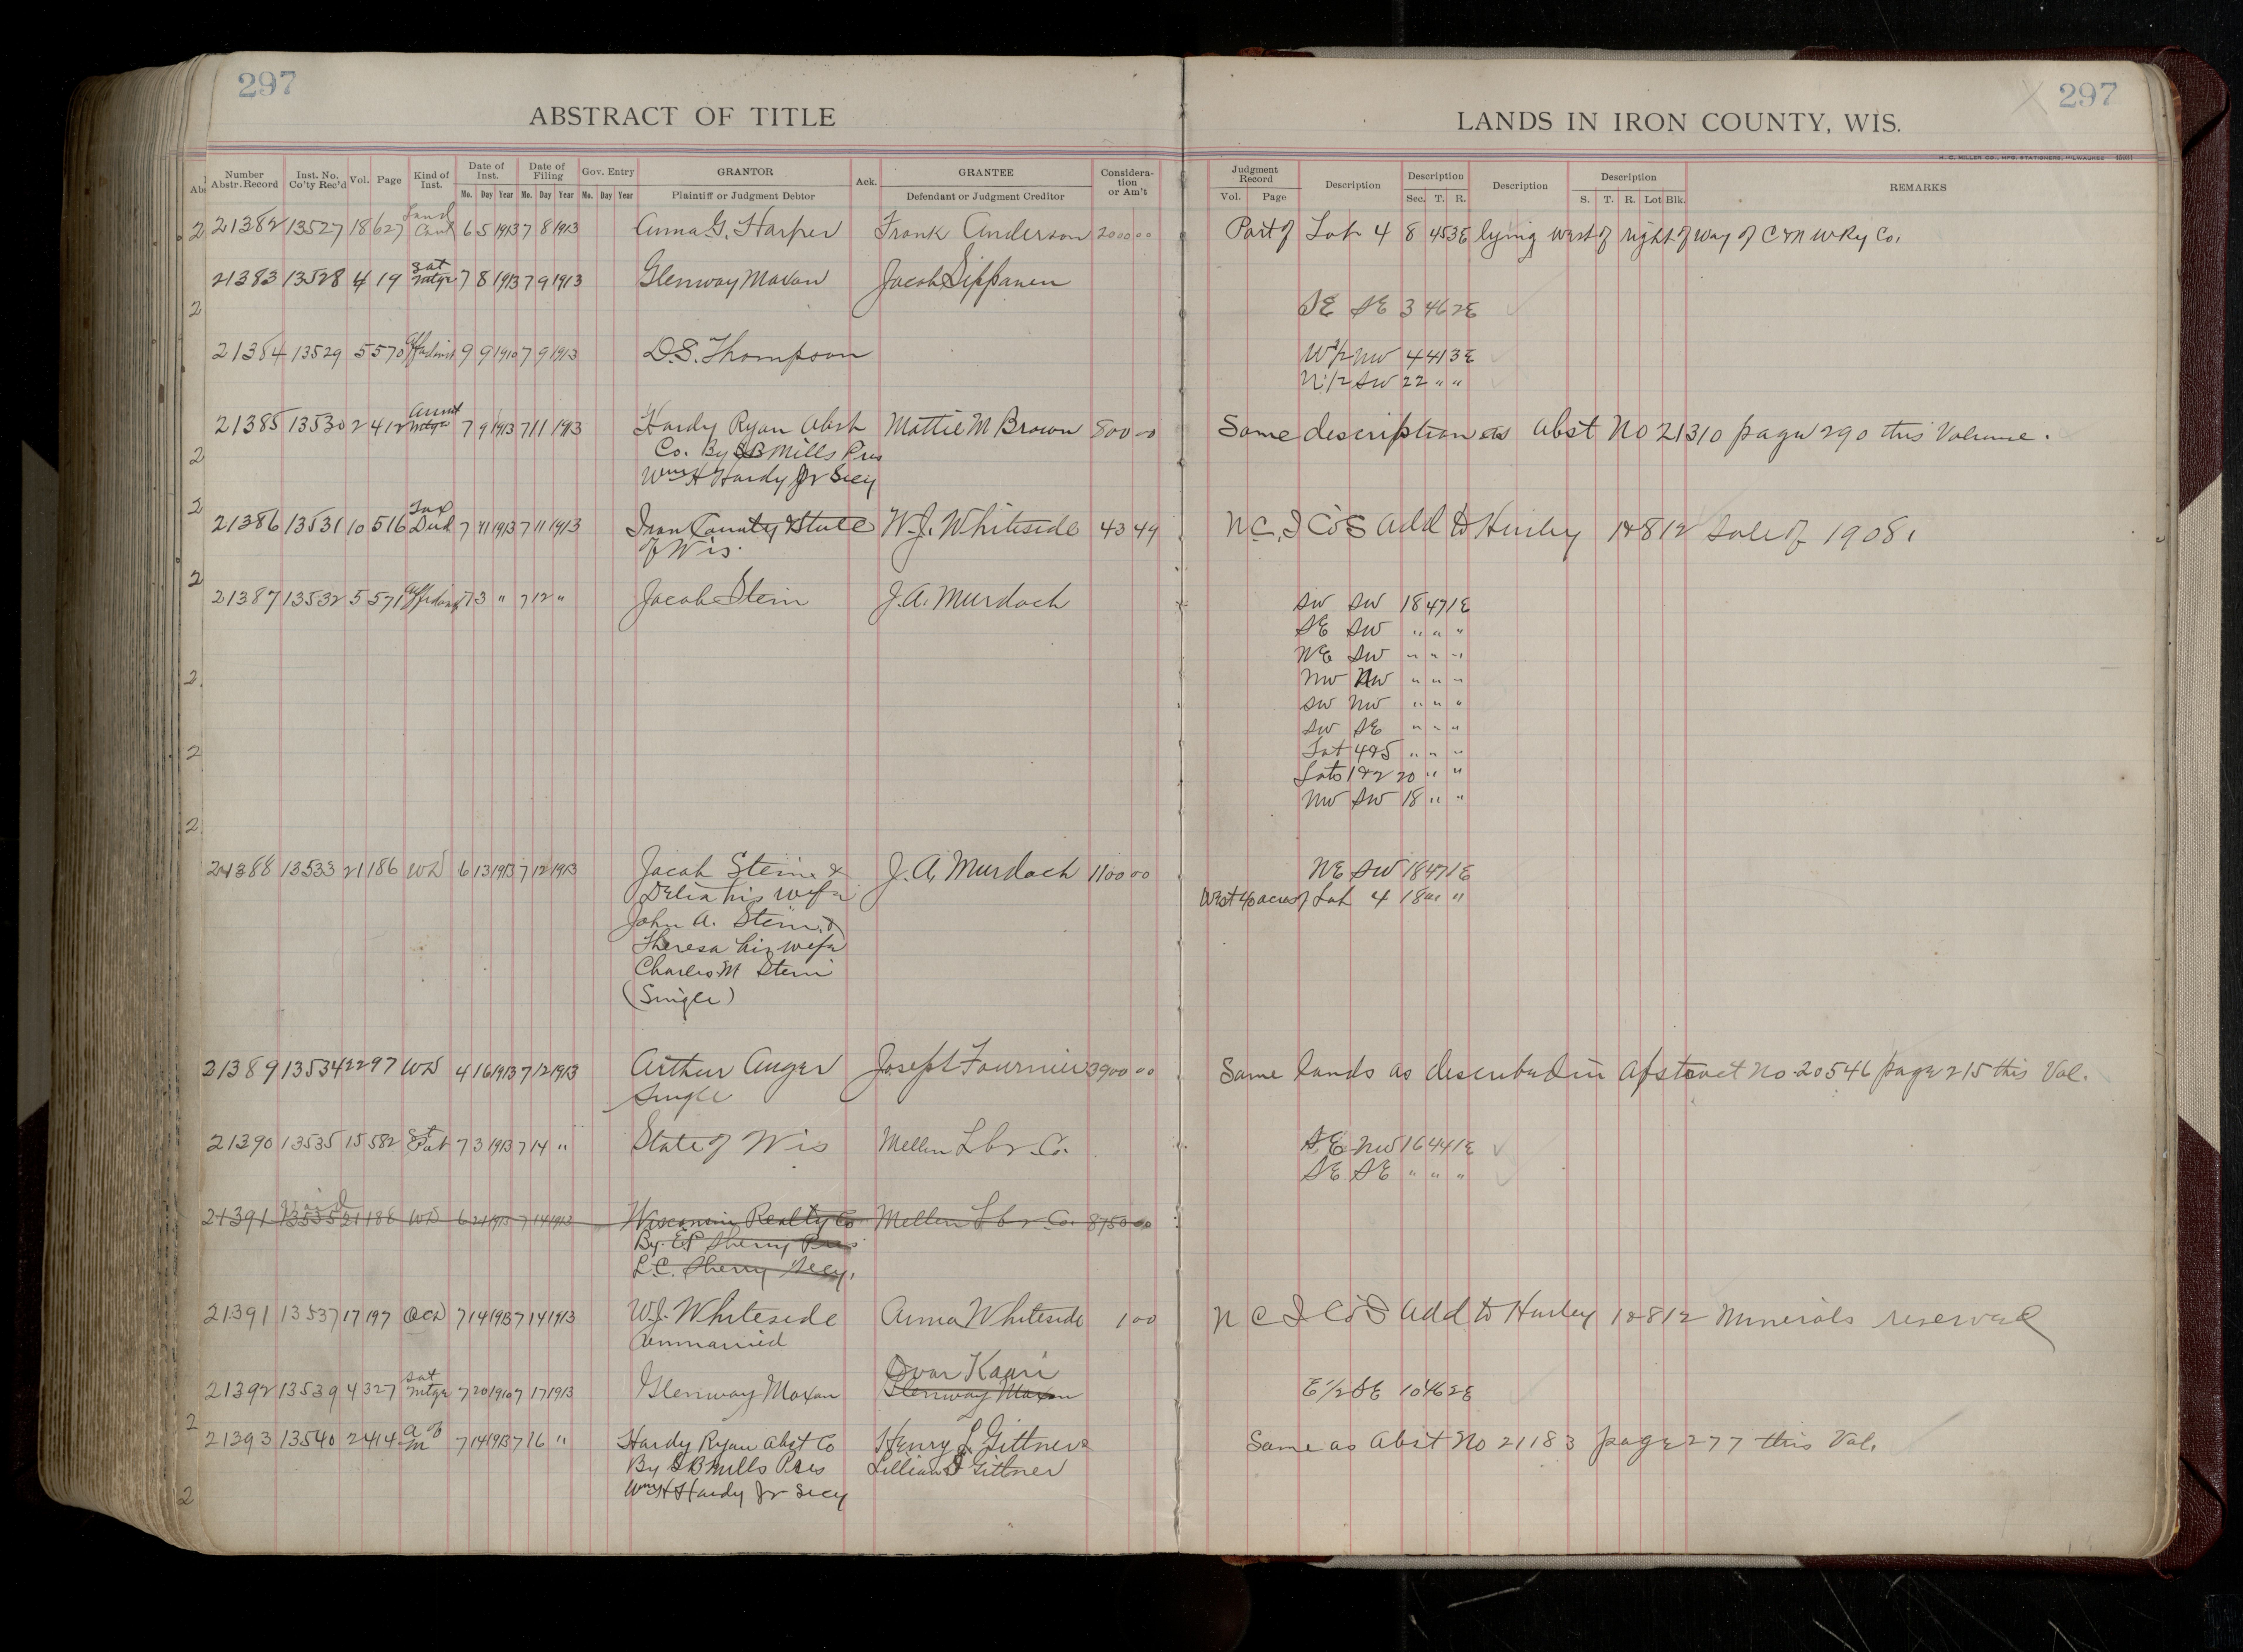 297
297
ABSTRACT OF TITLE
LANDS IN IRON COUNTY, WIS.
H. C. MILLER CO., MFG. STATIONERS, MILWAUKEE
Number Abstr. Record Inst. No. Co'ty Rec'd Vol. Page Kind of Inst. Date of Inst. Date of Filing Gov. Entry GRANTOR Ack. GRANTEE Consideration or Am't Judgment Record Description Description Description Description REMARKS
Mo. Day Year Mo. Day Year Mo. Day Year Plaintiff or Judgment Debtor Defendant or Judgment Creditor Vol. Page Sec. T. R. S. T. R. Lot Blk.
21382 13527 18 627 Land Cont 6 5 1913 7 8 1913 Anna G. Harper Frank Anderson 2000 00 Part of Lot 4 8 45 3E lying west of right of way of C & N W Ry Co.
21383 13528 4 19 Sat Mtge 7 8 1913 7 9 1913 Glenway Maxon Jacob Sippanen
SE SE 3 46 2E
21384 13529 5 570 Affidavit 9 9 1910 7 9 1913 D.S. Thompson W 1/2 NW 4 41 3E
N 1/2 SW 22 " "
21385 13530 2 412 Assmt Mtge 7 9 1913 7 11 1913 Hardy Ryan Abst Mattie M Brown 800 00 Same description as Abst No 21310 page 290 this Volume.
Co. By SB Mills Pres
Wm H Hardy Jr Secy
21386 13531 10 516 Tax Deed 7 11 1913 7 11 1913 Iron County & State W.J. Whiteside 43 49 N.C.I Co's Add to Hurley 12 8 12 Sale of 1908.
of Wis.
21387 13532 5 571 Affidavit 7 3 " 7 12 " Jacob Stein J.A. Murdoch SW SW 18 47 1E
SE SW " " "
NE SW " " "
NW NW " " "
SW NW " " "
SW SE " " "
Lot 4&5 " " "
Lots 1&2 20 " "
NW SW 18 " "
21388 13533 21 186 WD 6 13 1913 7 12 1913 Jacob Stein & J.A. Murdoch 1100 00 NE SW 18 47 1E
Delia his wife West 40 acres of Lot 4 18 " "
John A. Stein &
Theresa his wife
Charles M Stein
(Single)
21389 13534 22 97 WD 4 16 1913 7 12 1913 Arthur Auger Joseph Fournier 3900 00 Same lands as described in Abstract No. 20546 page 215 this Vol.
Single
21390 13535 15 582 St Pat 7 3 1913 7 14 " State of Wis Mellen Lbr. Co. SE NW 16 44 1E
SE SE " " "
21391 13535 21 188 WD 6 21 1913 7 14 1913 Wisconsin Realty Co Mellen Lbr. Co. 8750 00
By. EP Sherry Pres
L.C. Sherry Secy.
21391 13537 17 197 QCD 7 14 1913 7 14 1913 W.J. Whiteside Anna Whiteside 1 00 N C I Co's Add to Hurley 12 8 12 Minerals reserved
Unmarried
Kaari
21392 13539 4 327 Sat Mtge 7 20 1910 7 17 1913 Glenway Maxon Glenway Maxon E 1/2 SE 10 46 2E
21393 13540 2 414 A of M 7 14 1913 7 16 " Hardy Ryan Abst Co Henry L. Gittner & Same as Abst No 21183 page 277 this Vol.
By SB Mills Pres Lillian Gittner
Wm H Hardy Jr Secy